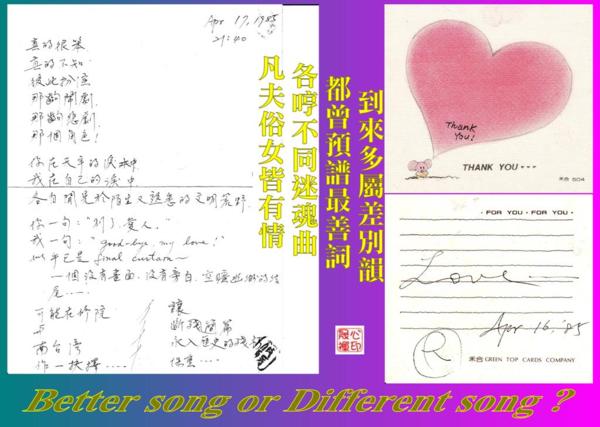 Apr 17, 1985
21:40
真的很笨
真的不知
彼此扮演
那齣鬧劇
那齣悲劇
那個角色！
你在天平的淚水中
我在自己的淚中
各自開見於陌生又熟悉的文明荒野
你一句："別了，愛人。"
我一句："good-bye, my love！"
似乎已是 final curtain～
一個沒有畫面、沒有旁白、空曠
尾……
可能在修院
與
南台灣
作一抉擇……
讓
斷殘簡篇
永入歷史的
凡夫俗女皆有情
各哼不同迷魂曲
都曾預譜最善詞
到來多屬差別韻
Thank You!
THANK YOU---
禾合 504
· FOR YOU · FOR YOU ·
Love
Apr 16, '85
R
禾合 GREEN TOP CARDS COMPANY
Better song or Different song ?